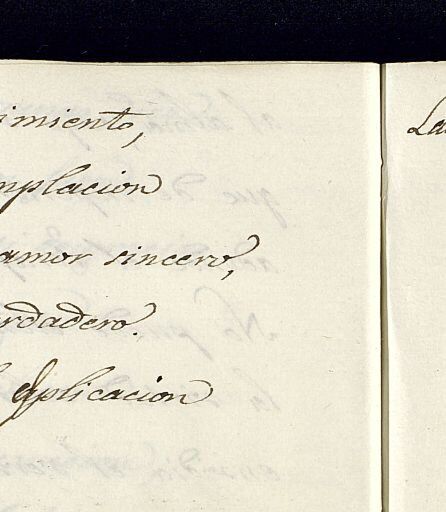 imiento,
mplacion
amor sincero,
erdadero.
aplicacion
La